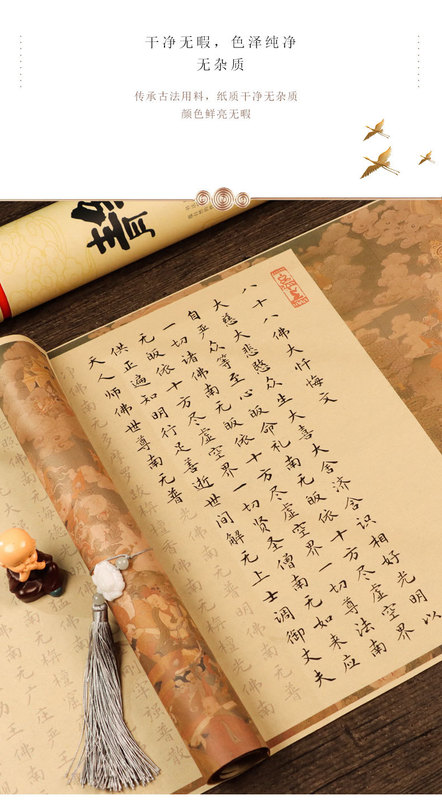 干净无暇，色泽纯净
无杂质
传承古法用料，纸质干净无杂质
颜色鲜亮无暇
八十八佛大忏悔文
大慈大悲愍众生大喜大舍济含识相好光明以
自严众等至心皈命礼南无皈依十方尽虚空界
一切诸佛南无皈依十方尽虚空界一切尊法南
无皈依十方尽虚空界一切贤圣僧南无如来应
供正遍知明行足善逝世间解无上士调御丈夫
天人师佛世尊南无普